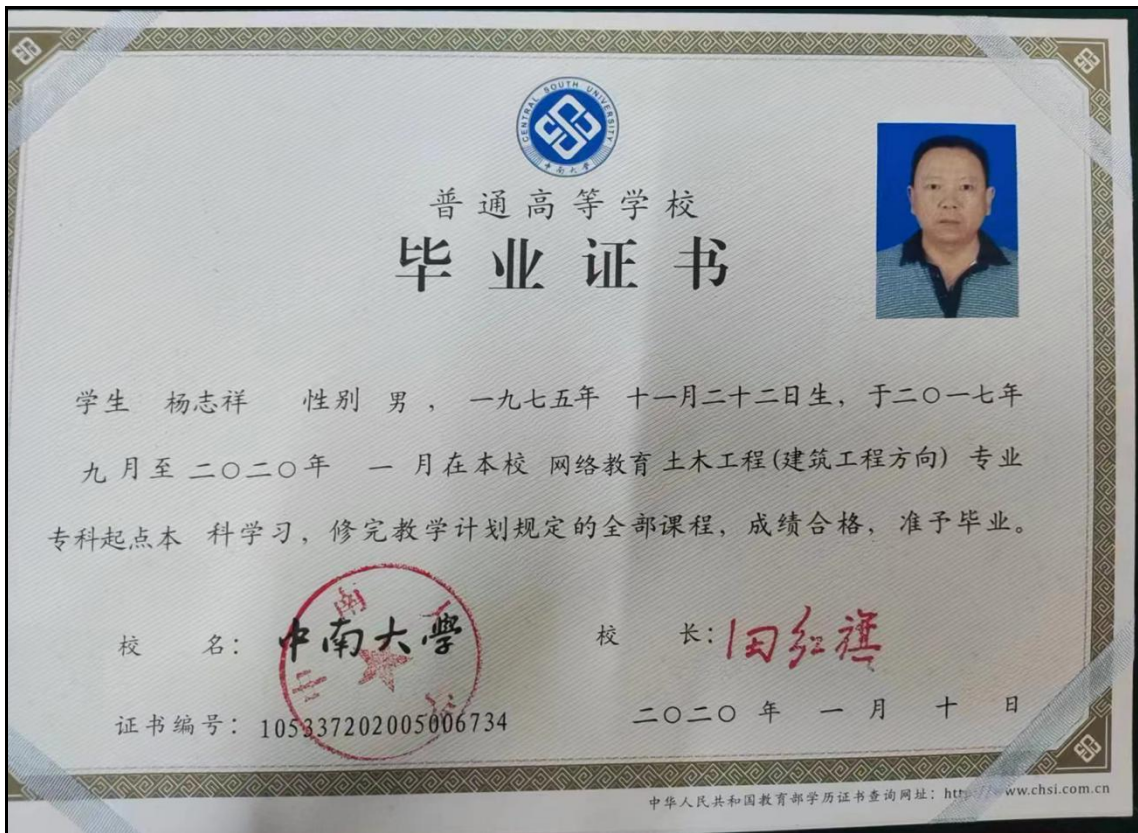 CENTRAL SOUTH UNIVERSITY
中南大学
普通高等学校
毕业证书
学生 杨志祥 性别 男 ， 一九七五年 十一月二十二日生，于二〇一七年
九 月至 二〇二〇年 一 月在本校 网络教育 土木工程(建筑工程方向) 专业
专科起点本 科学习，修完教学计划规定的全部课程，成绩合格，准予毕业。
校 名： 中南大學
校 长： 田红旗
证书编号： 105337202005006734
二〇二〇 年 一 月 十 日
中华人民共和国教育部学历证书查询网址：http://www.chsi.com.cn